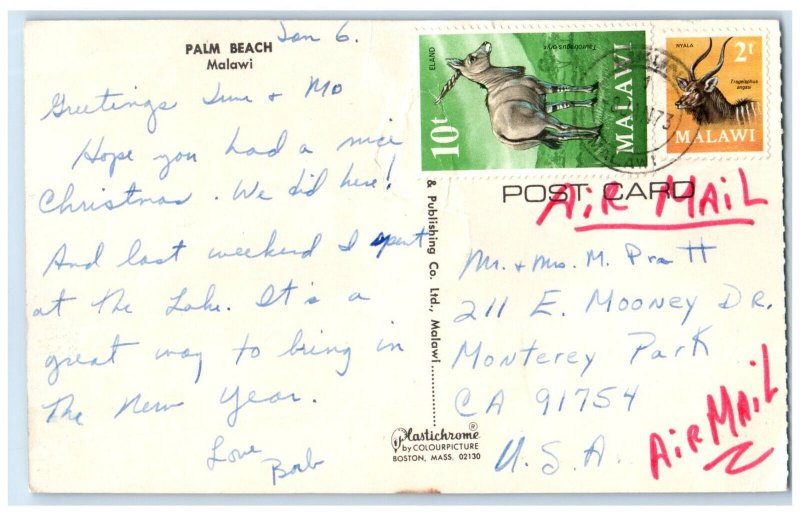 PALM BEACH
Malawi
Jan 6.
Greetings June & Mo
Hope you had a nice
Christmas. We did here!
And last weekend I spent
at the Lake. It's a
great way to bring in
the New Year.
Love
Barb
& Publishing Co. Ltd., Malawi
Plastichrome®
by COLOURPICTURE
BOSTON, MASS. 02130
ELAND
Taurotragus oryx
10t
MALAWI
NYALA
2t
Tragelaphus
angasi
MALAWI
POST CARD
AIR MAIL
Mr. & Mrs. M. Pratt
211 E. Mooney Dr.
Monterey Park
CA 91754
U.S.A.
AIR MAIL